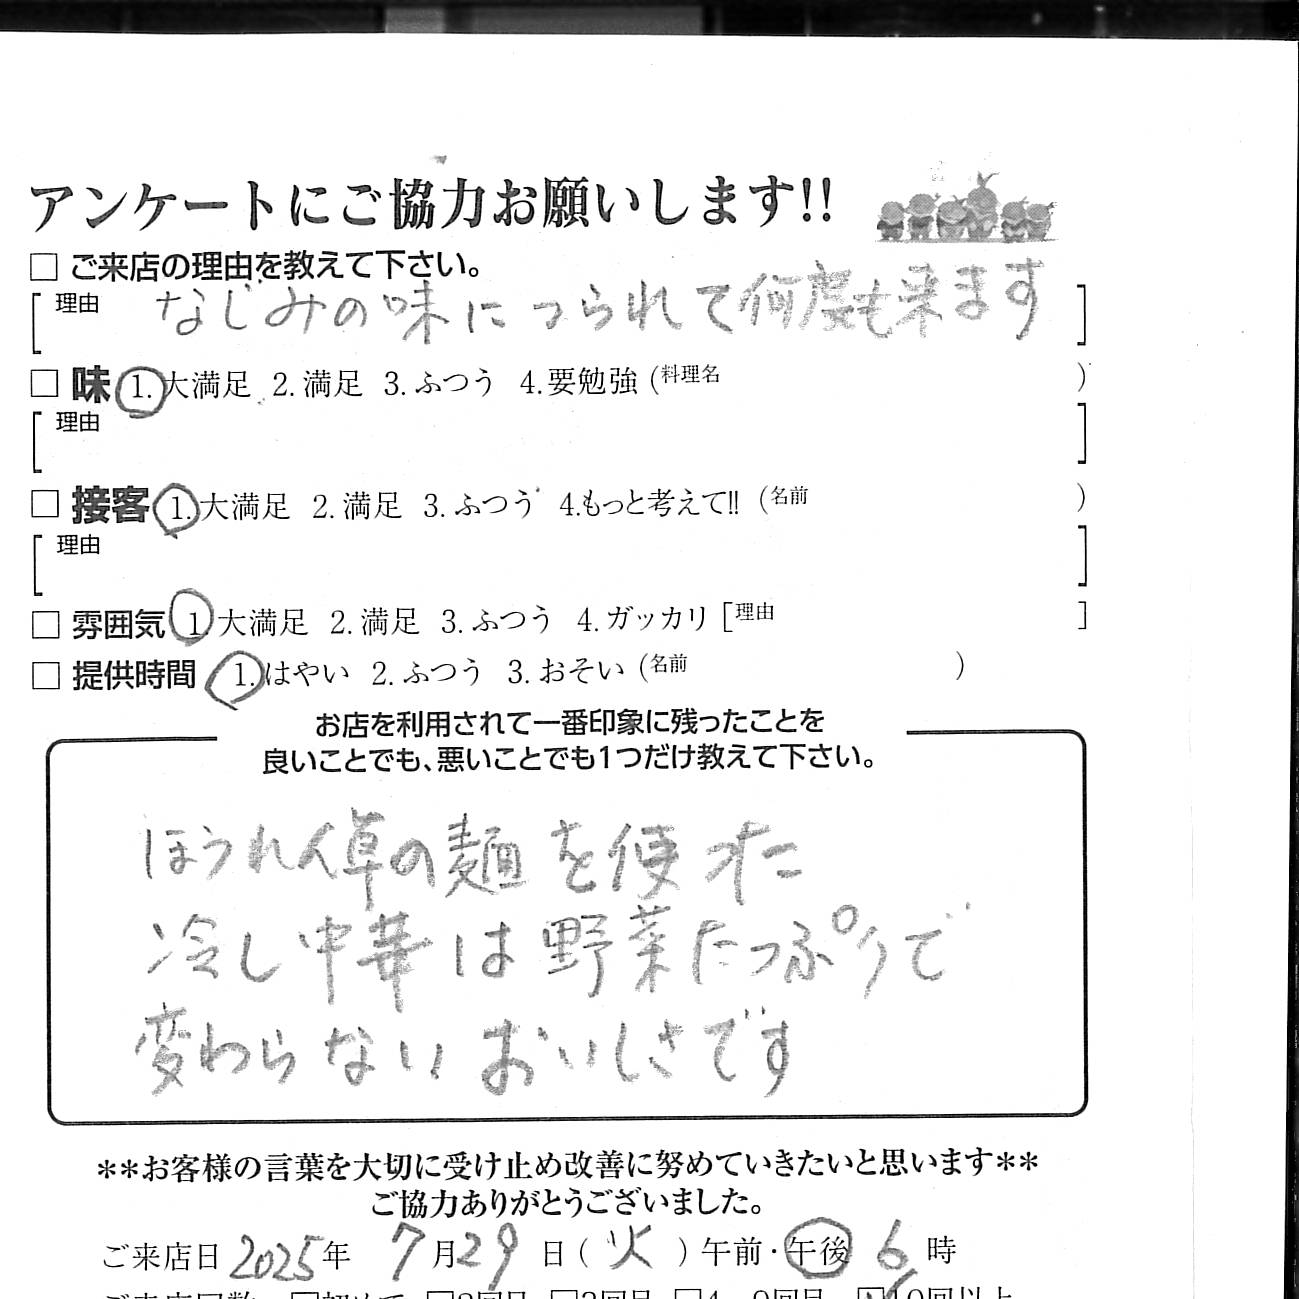 アンケートにご協力お願いします!!
□ ご来店の理由を教えて下さい。
[理由 なじみの味につられて何度も来ます]
□ 味 1.大満足 2.満足 3.ふつう 4.要勉強 (料理名 )
[理由 ]
□ 接客 1.大満足 2.満足 3.ふつう 4.もっと考えて!! (名前 )
[理由 ]
□ 雰囲気 1.大満足 2.満足 3.ふつう 4.ガッカリ [理由 ]
□ 提供時間 1.はやい 2.ふつう 3.おそい (名前 )
お店を利用されて一番印象に残ったことを
良いことでも、悪いことでも1つだけ教えて下さい。
ほうれん草の麺を使った
冷し中華は野菜たっぷりで
変わらないおいしさです
**お客様の言葉を大切に受け止め改善に努めていきたいと思います**
ご協力ありがとうございました。
ご来店日 2025年 7月29日(火)午前・午後 6時
ご来店回数 □初めて □2回目 □3回目 □4~9回目 □10回以上